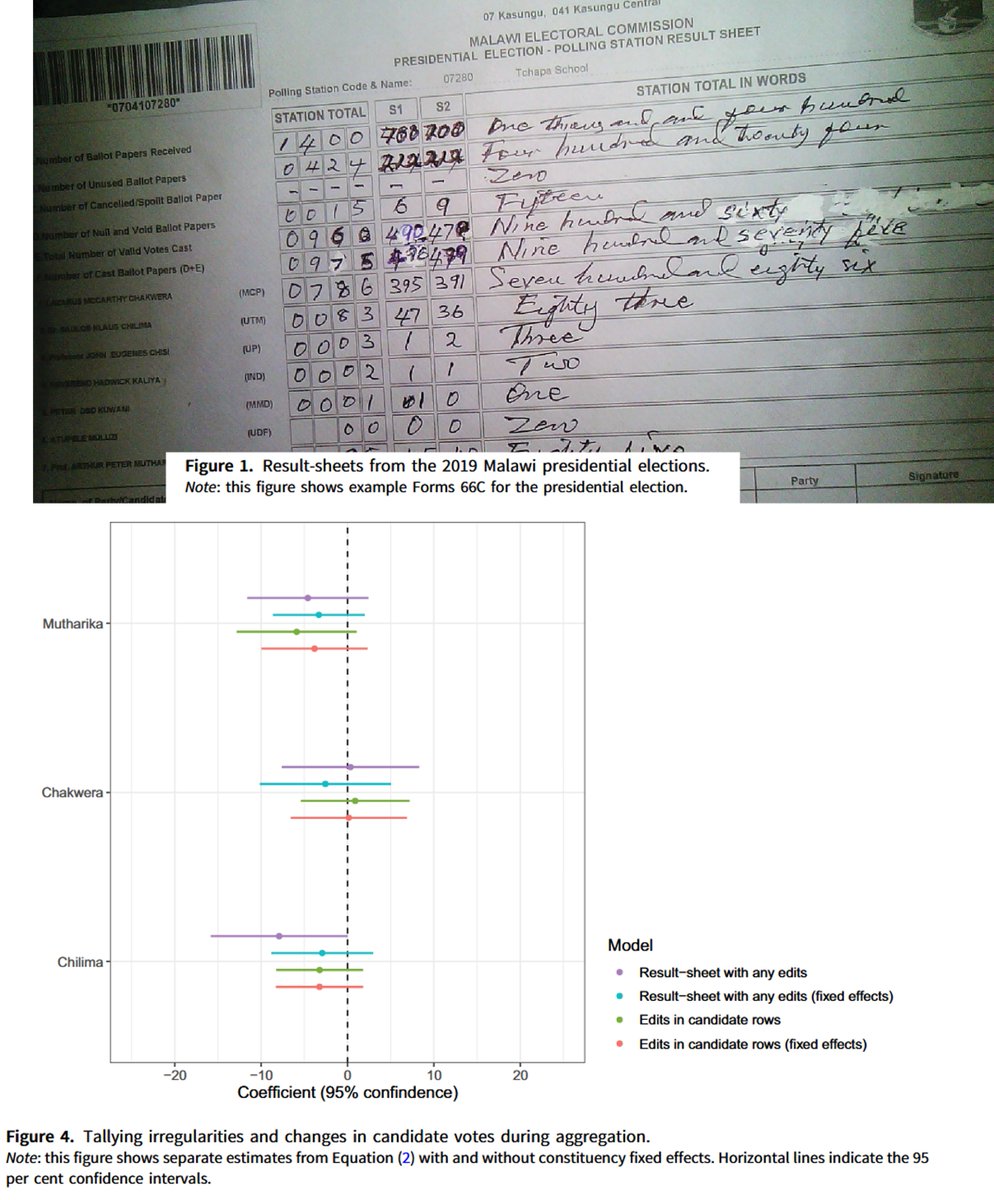 07 Kasungu, 041 Kasungu Central
MALAWI ELECTORAL COMMISSION
PRESIDENTIAL ELECTION - POLLING STATION RESULT SHEET
*0704107280*
Polling Station Code & Name: 07280 Tchapa School
STATION TOTAL S1 S2 STATION TOTAL IN WORDS
Number of Ballot Papers Received 1 4 0 0 700 700 One and four hundred
Number of Unused Ballot Papers 0 4 2 4 212 212 Four hundred and twenty four
Number of Cancelled/Spoilt Ballot Paper - - - - - - Zero
Number of Null and Void Ballot Papers 0 0 1 5 6 9 Fifteen
Total Number of Valid Votes Cast 0 9 6 0 490 470 Nine hundred and sixty
Number of Cast Ballot Papers (D+E) 0 9 7 5 479 Nine hundred and seventy five
LAZARUS MCCARTHY CHAKWERA (MCP) 0 7 8 6 395 391 Seven hundred and eighty six
SAULOS KLAUS CHILIMA (UTM) 0 0 8 3 47 36 Eighty three
Professor JOHN EUGENES CHISI (UP) 0 0 0 3 1 2 Three
REVEREND HADWICK KALIYA (IND) 0 0 0 2 1 1 Two
PETER KUWANI (MMD) 0 0 0 1 1 0 One
ATUPELE MULUZI (UDF) 0 0 0 0 Zero
7. Prof. ARTHUR PETER MUTHAR
Name of Party/Candidat Party Signature
Figure 1. Result-sheets from the 2019 Malawi presidential elections.
Note: this figure shows example Forms 66C for the presidential election.
Mutharika
Chakwera
Chilima
Model
Result-sheet with any edits
Result-sheet with any edits (fixed effects)
Edits in candidate rows
Edits in candidate rows (fixed effects)
−20 −10 0 10 20
Coefficient (95% confindence)
Figure 4. Tallying irregularities and changes in candidate votes during aggregation.
Note: this figure shows separate estimates from Equation (2) with and without constituency fixed effects. Horizontal lines indicate the 95
per cent confidence intervals.